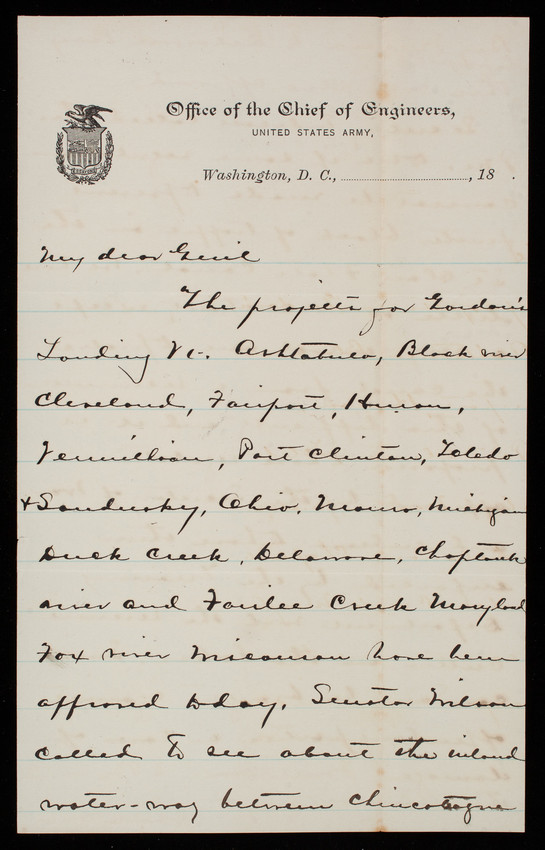 Office of the Chief of Engineers,
UNITED STATES ARMY,
Washington, D. C., ........................, 18 .
My dear Genl
The projects for Gordon's
Landing Vt. Ashtabula, Black river
Cleveland, Fairport, Huron,
Vermillion, Port Clinton, Toledo
& Sandusky, Ohio. Monro, Michigan
Duck Creek, Delaware, Choptank
river and Fairlee Creek Maryland
Fox river Wisconsin have been
approved today. Senator Wilson
called to see about the inland
water-way between Chincoteague